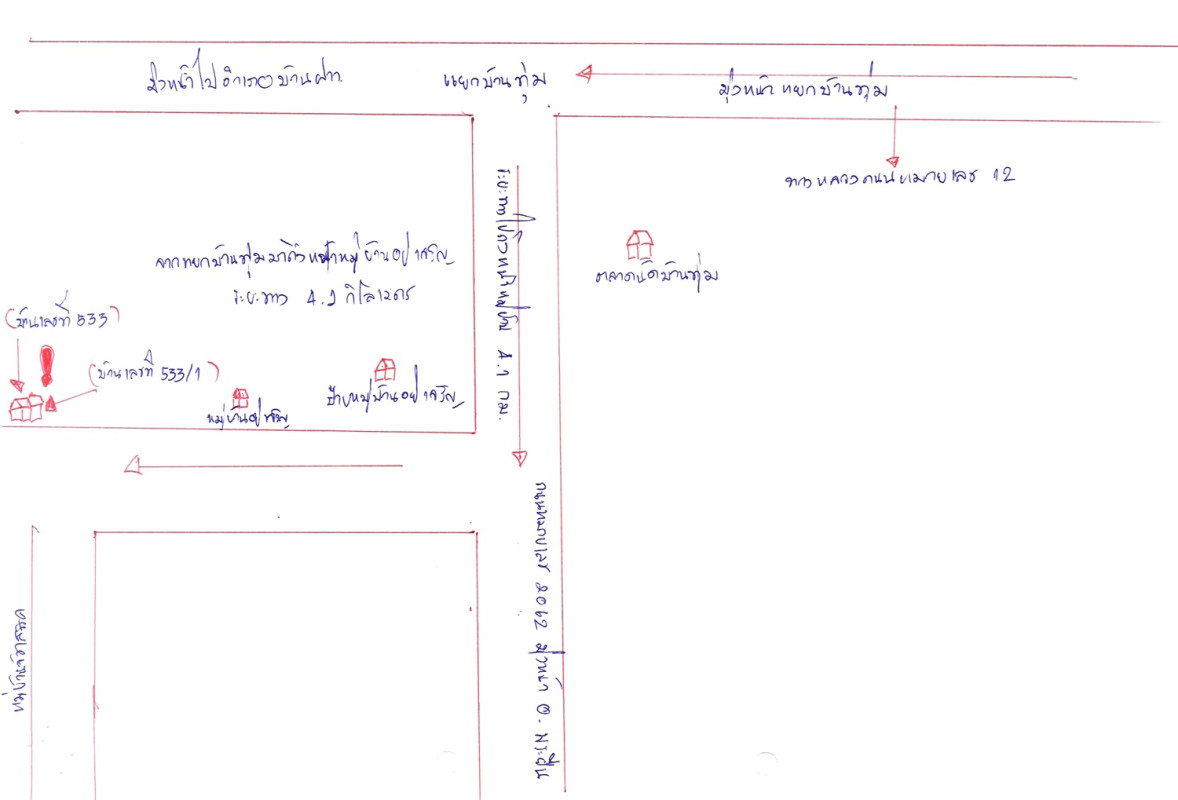 มุ่งหน้าไปอำเภอบ้านฝาง
แยกบ้านทุ่ม
มุ่งหน้าแยกบ้านทุ่ม
ทางหลวงถนนหมายเลข 12
ระยะทาง
หน้าหมู่บ้าน 4.1 กม.
ตลาดนัดบ้านทุ่ม
จากแยกบ้านทุ่มมาถึงหน้าหมู่บ้านอยู่เจริญ
ระยะทาง 4.1 กิโลเมตร
(บ้านเลขที่ 533)
(บ้านเลขที่ 533/1)
หมู่บ้านอยู่เจริญ
ป้ายหมู่บ้านอยู่เจริญ
ถนนหมายเลข 2062 มุ่งหน้า อ. พระยืน
หมู่บ้าน